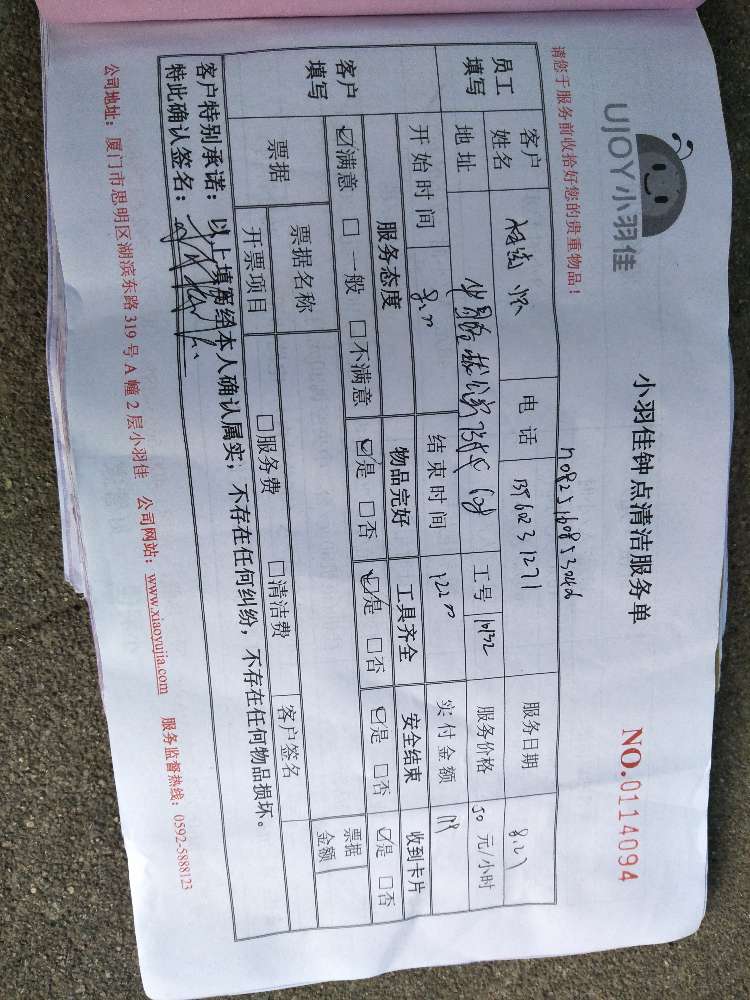 UJOY小羽佳
小羽佳钟点清洁服务单
NO.0114094
请您于服务前收拾好您的贵重物品！
员工填写
客户姓名
电话
服务日期
地址
工号
服务价格 50 元/小时
开始时间
结束时间
实付金额
客户填写
服务态度 物品完好 工具齐全 安全结束 收到卡片
☑满意 □一般 □不满意 ☑是 □否 ☑是 □否 ☑是 □否 ☑是 □否
票据
票据名称
票据金额
开票项目 □服务费 □清洁费 客户签名
客户特别承诺：以上填写经本人确认属实，不存在任何纠纷，不存在任何物品损坏。
特此确认签名：
公司地址：厦门市思明区湖滨东路 319 号 A 幢 2 层小羽佳 公司网站：www.xiaoyujia.com 服务监督热线：0592-5888123